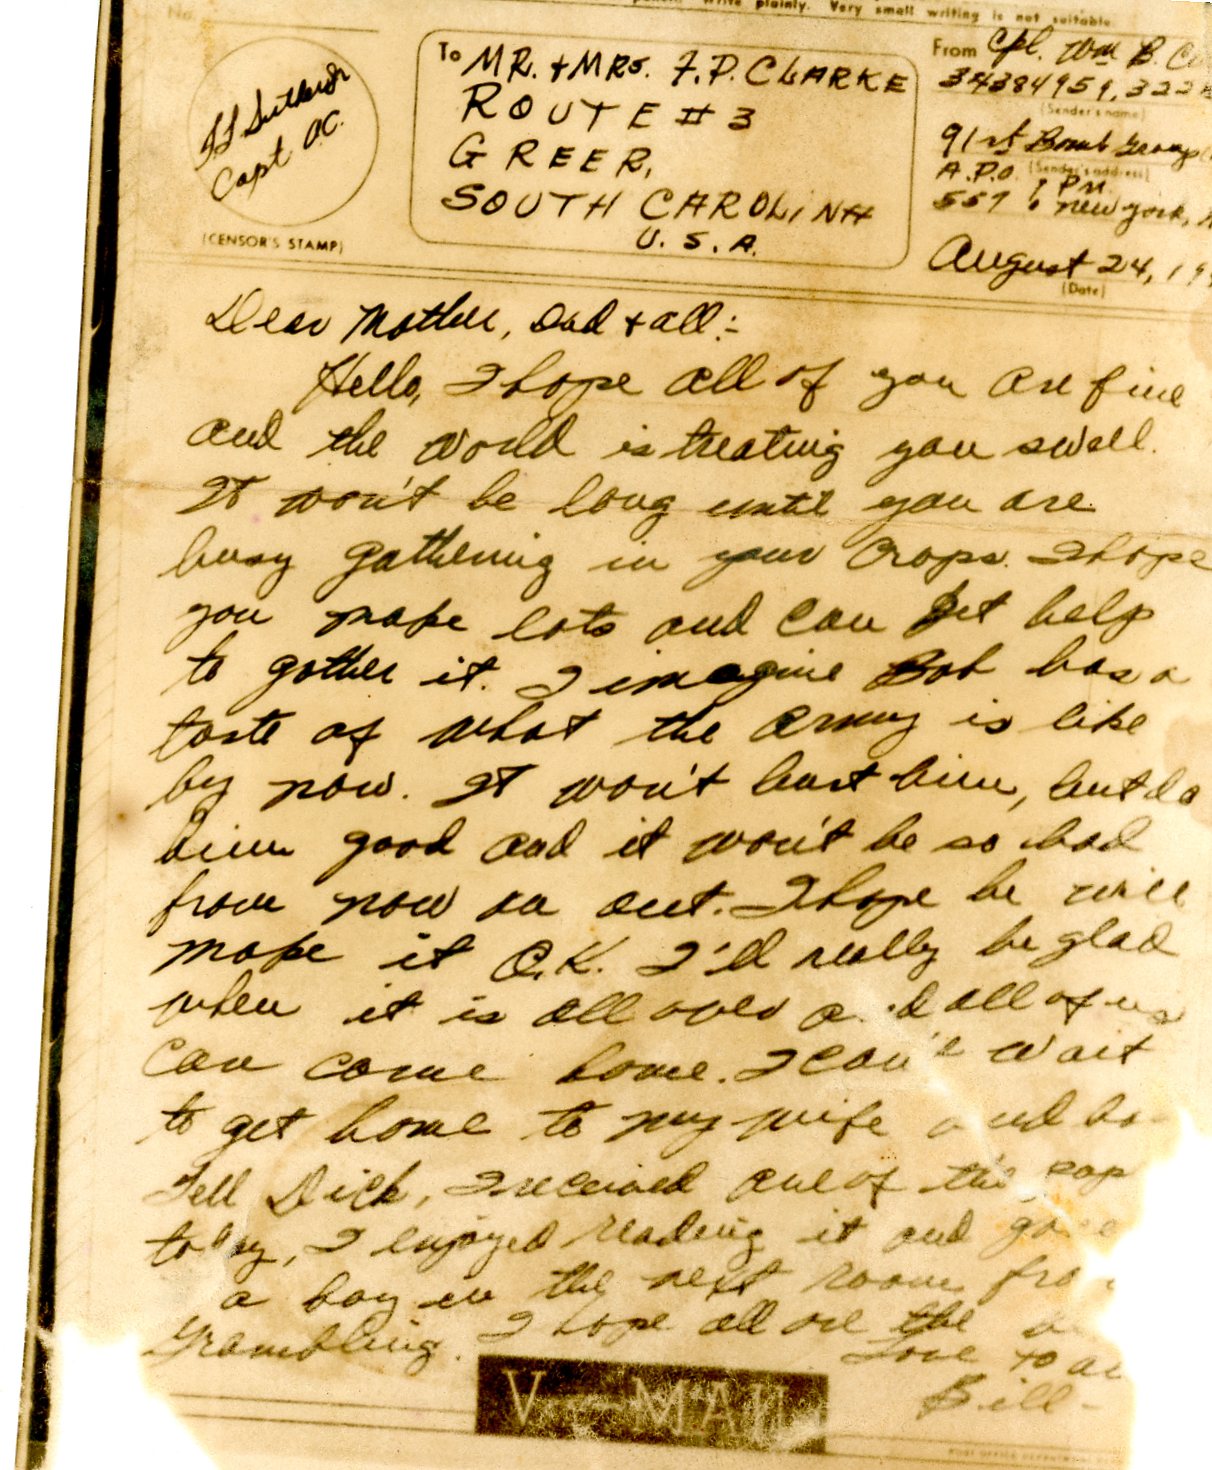 No.
write plainly. Very small writing is not suitable.
Capt. A.C.
(CENSOR'S STAMP)
To MR. + MRS. F.P. CLARKE
ROUTE # 3
GREER,
SOUTH CAROLINA
U.S.A.
From Cpl. Wm B. C
34384959, 322
(Sender's name)
91st Bomb Group
(Sender's address)
A.P.O. 557 % P.M.
New York,
August 24, 19
(Date)
Dear Mother, Dad + all:-
Hello, I hope all of you are fine
and the world is treating you swell.
It won't be long until you are
busy gathering in your crops. I hope
you make lots and can get help
to gather it. I imagine Bob has a
taste of what the army is like
by now. It won't hurt him, but do
him good and it won't be so bad
from now on out. I hope he will
make it O.K. I'll really be glad
when it is all over and all of us
can come home. I can't wait
to get home to my wife and
Tell Dick, I received one of the
today, I enjoyed reading it and
a boy in the next room
Grambling. I hope all are the
Love to
Bill-
V-MAIL